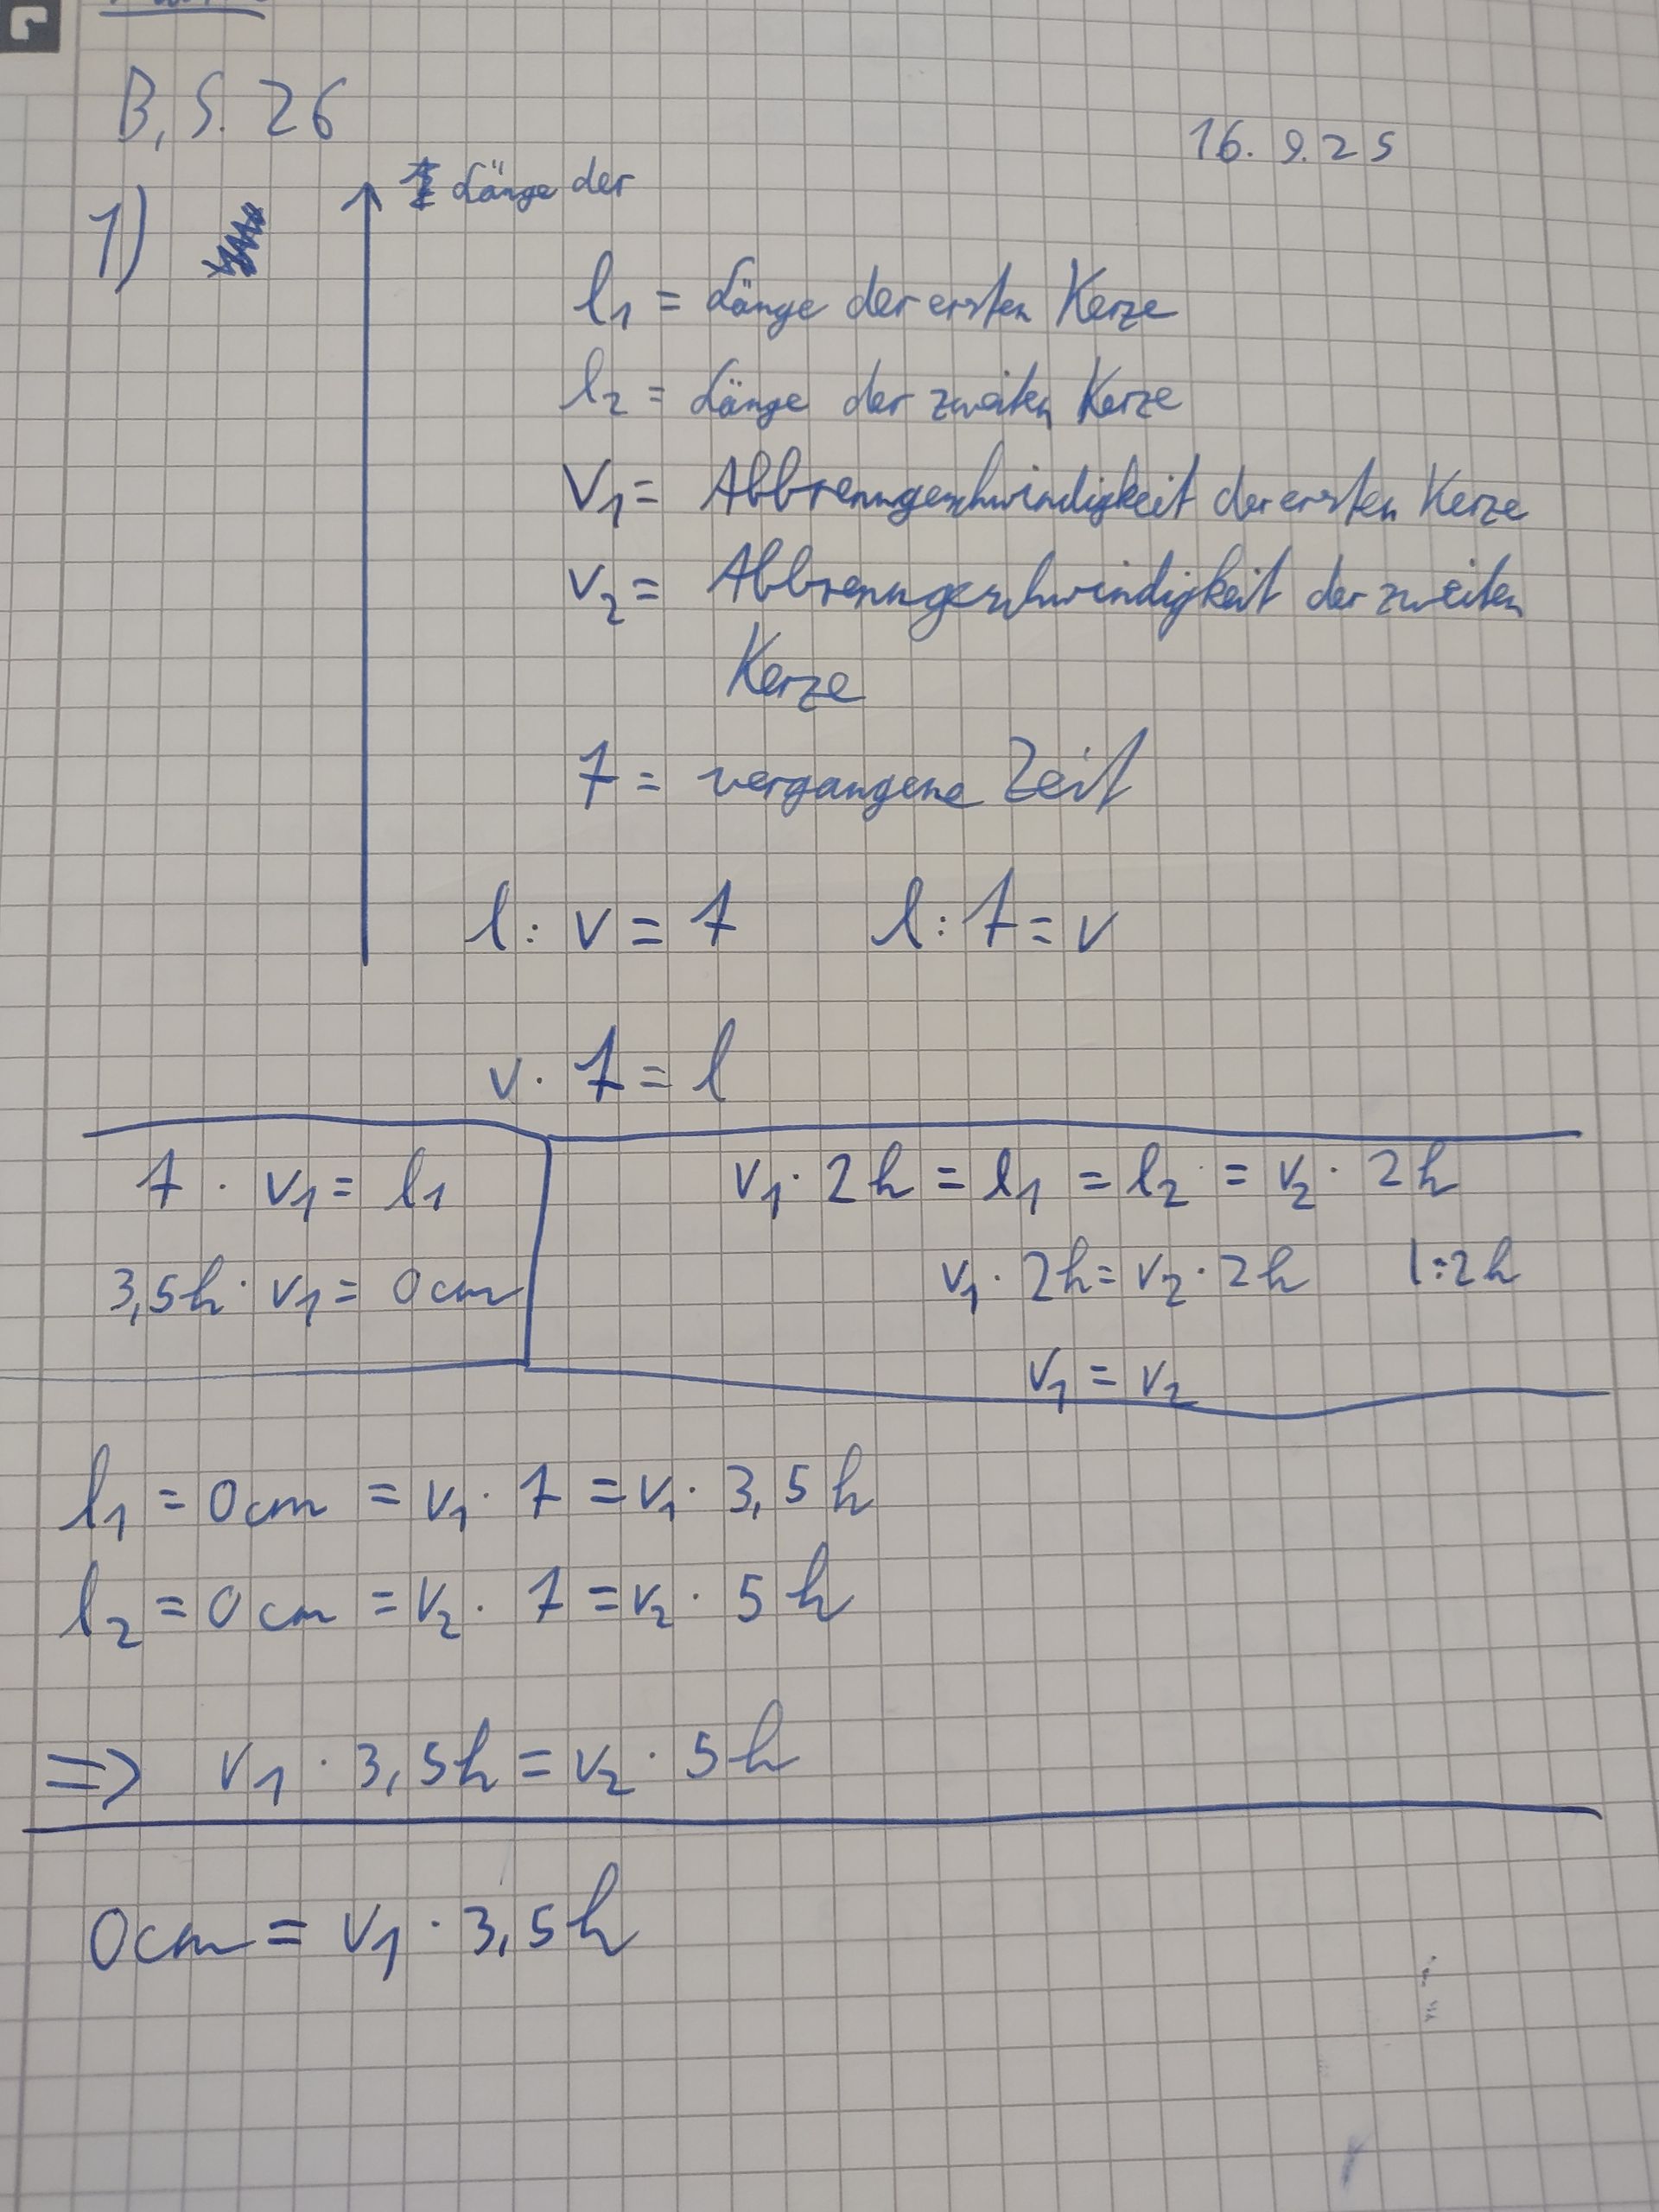 B, S. 26
16.9.25
1)
Länge der
l₁ = Länge der ersten Kerze
l₂ = Länge der zweiten Kerze
V₁ = Abbrenngeschwindigkeit der ersten Kerze
v₂ = Abbrenngeschwindigkeit der zweiten
Kerze
t = vergangene Zeit
l : v = t l : t = v
v · t = l
t · v₁ = l₁
3,5h · v₁ = 0cm
v₁ · 2h = l₁ = l₂ = v₂ · 2h
v₁ · 2h = v₂ · 2h |:2h
v₁ = v₂
l₁ = 0cm = v₁ · t = v₁ · 3,5h
l₂ = 0cm = v₂ · t = v₂ · 5h
=> v₁ · 3,5h = v₂ · 5h
0cm = v₁ · 3,5h